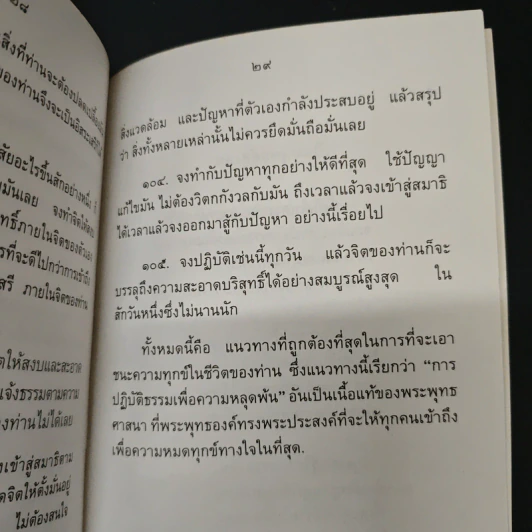 ๒๘
สิ่งที่ท่านจะต้องปลดเปลื้อง
ของท่านจึงจะเป็นอิสระ
สัยอะไรขึ้นสักอย่างหนึ่ง
มันเลย จงทำจิตให้
ทธิ์ภายในจิตของตัวเอง
การที่จะดีไปกว่าการเข้าถึง
สรี ภายในจิตของท่าน
ให้สงบและสะอาด
แจ้งธรรมตามความ
องท่านไม่ได้เลย
งเข้าสู่สมาธิตาม
ดจิตให้ตั้งมั่นอยู่
ไม่ต้องสนใจ
๒๙
สิ่งแวดล้อม และปัญหาที่ตัวเองกำลังประสบอยู่ แล้วสรุป
ว่า สิ่งทั้งหลายเหล่านั้นไม่ควรยึดมั่นถือมั่นเลย
๑๐๔. จงทำกับปัญหาทุกอย่างให้ดีที่สุด ใช้ปัญญา
แก้ไขมัน ไม่ต้องวิตกกังวลกับมัน ถึงเวลาแล้วจงเข้าสู่สมาธิ
ได้เวลาแล้วจงออกมาสู้กับปัญหา อย่างนี้เรื่อยไป
๑๐๕. จงปฏิบัติเช่นนี้ทุกวัน แล้วจิตของท่านก็จะ
บรรลุถึงความสะอาดบริสุทธิ์ได้อย่างสมบูรณ์สูงสุด ใน
สักวันหนึ่งซึ่งไม่นานนัก
ทั้งหมดนี้คือ แนวทางที่ถูกต้องที่สุดในการที่จะเอา
ชนะความทุกข์ในชีวิตของท่าน ซึ่งแนวทางนี้เรียกว่า “การ
ปฏิบัติธรรมเพื่อความหลุดพ้น” อันเป็นเนื้อแท้ของพระพุทธ
ศาสนา ที่พระพุทธองค์ทรงพระประสงค์ที่จะให้ทุกคนเข้าถึง
เพื่อความหมดทุกข์ทางใจในที่สุด.